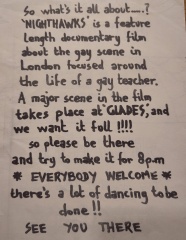 So what's it all about.....?
'NIGHTHAWKS' is a feature
length documentary film
about the gay scene in
London focused around
the life of a gay teacher.
A major scene in the film
takes place at 'GLADES', and
we want it full !!!!
so please be there
and try to make it for 8pm
* EVERYBODY WELCOME *
there's a lot of dancing to be
done !!
SEE YOU THERE